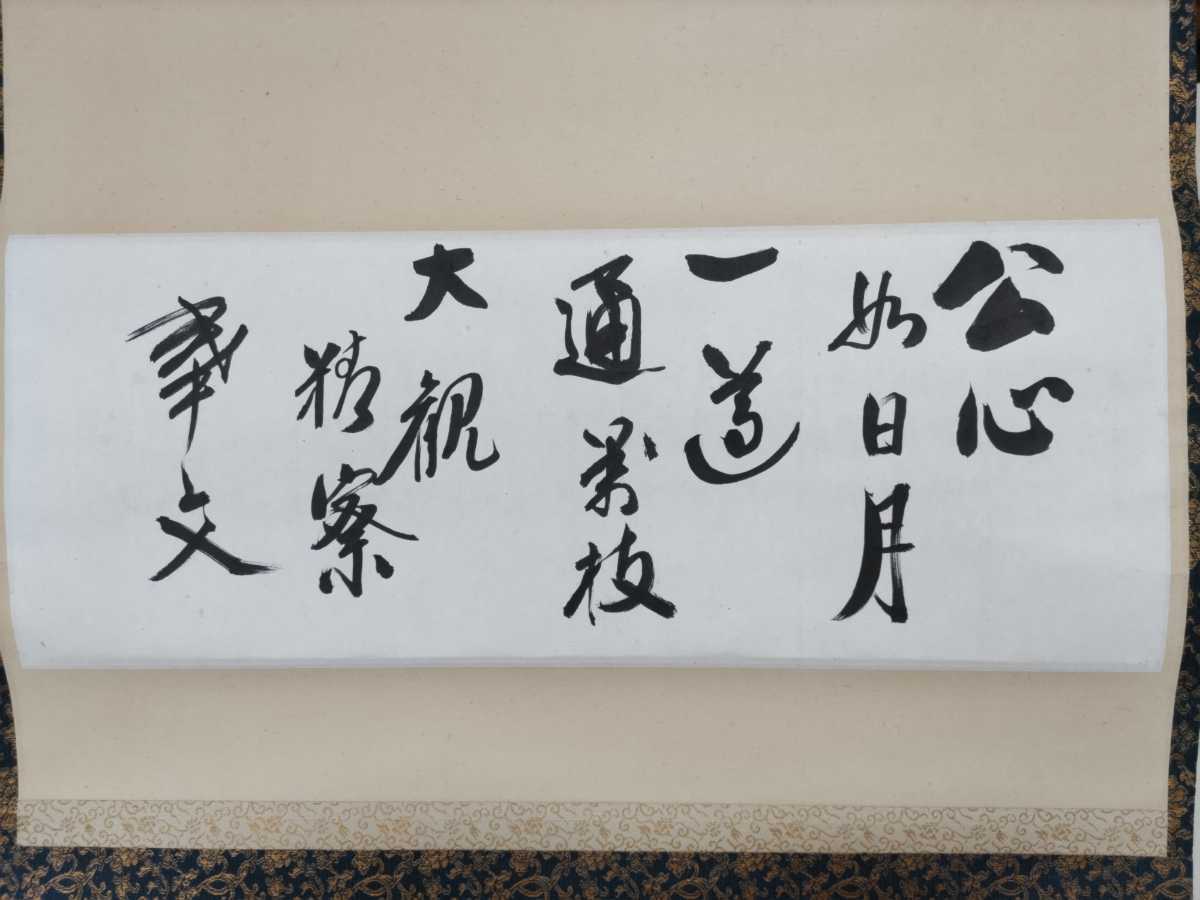 公心
如日月
一道
通萬枝
大観
精察
文